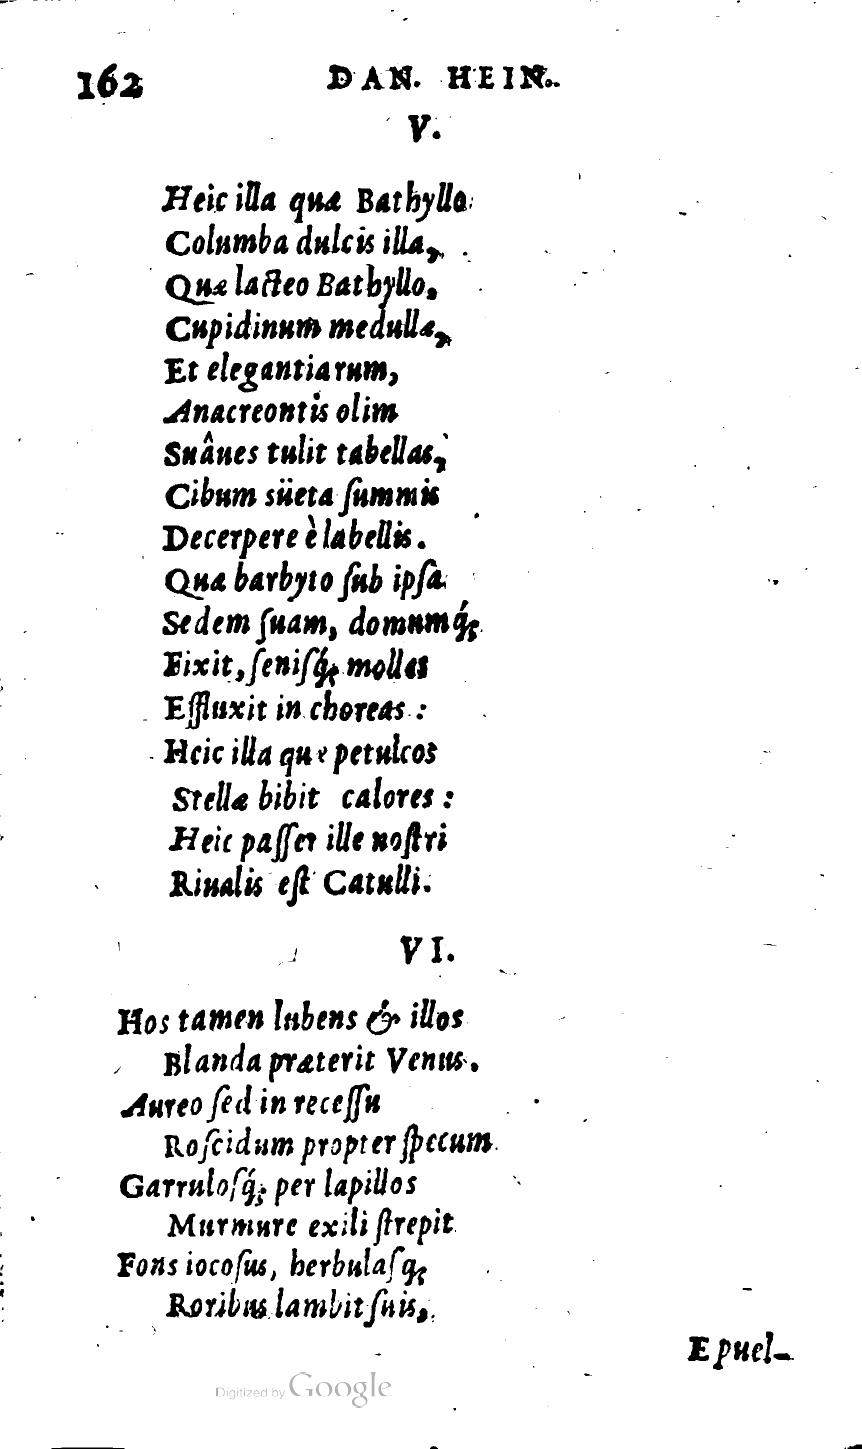 162 DAN. HEIN.
V.
Heic illa quæ Bathyllo
Columba dulcis illa,
Quæ lacteo Bathyllo,
Cupidinum medulla,
Et elegantiarum,
Anacreontis olim
Suâues tulit tabellas,
Cibum süeta ſummis
Decerpere è labellis.
Quæ barbyto ſub ipſa
Sedem ſuam, domumq́;
Fixit, ſeniſq́; molles
Effluxit in choreas :
Heic illa quæ petulcos
Stellæ bibit calores :
Heic paſſer ille noſtri
Riualis eſt Catulli.
VI.
Hos tamen lubens & illos
Blanda præterit Venus.
Aureo ſed in receſſu
Roſcidum propter ſpecum
Garruloſq́; per lapillos
Murmure exili ſtrepit
Fons iocoſus, herbulaſq;
Roribus lambit ſuis,
Epuel-
Digitized by Google